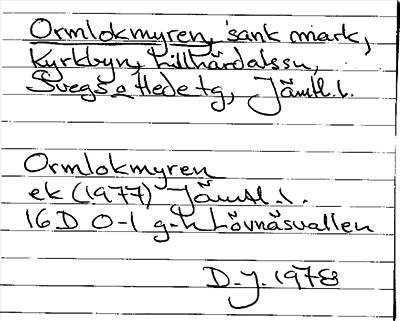 Ormlokmyren, sank mark,
Kyrkbyn, Lillhärdalssn,
Svegs o Hede tg, Jämtl. l.
Ormlokmyren
ek (1977) Jämtl. l.
16D 0-1 g-h Lövnäsvallen
D. J. 1978